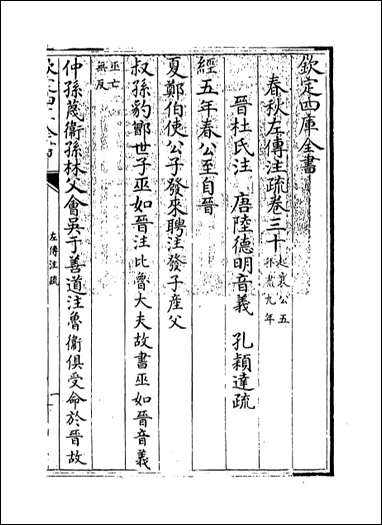 欽定四庫全書
春秋左傳注疏卷三十起襄公五年盡九年
晉杜氏注 唐陸德明音義 孔穎達疏
經五年春公至自晉
夏鄭伯使公子發來聘注發子産父
叔孫豹鄫世子巫如晉注比魯大夫故書巫如晉音義
巫亡無反
仲孫蔑衛孫林父會吳于善道注魯衛俱受命於晉故
欽定四庫全書
左傳注疏
一